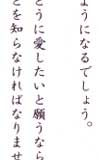 ようになるでしょう。
どうに愛したいと願うなら
とを知らなければなりませ